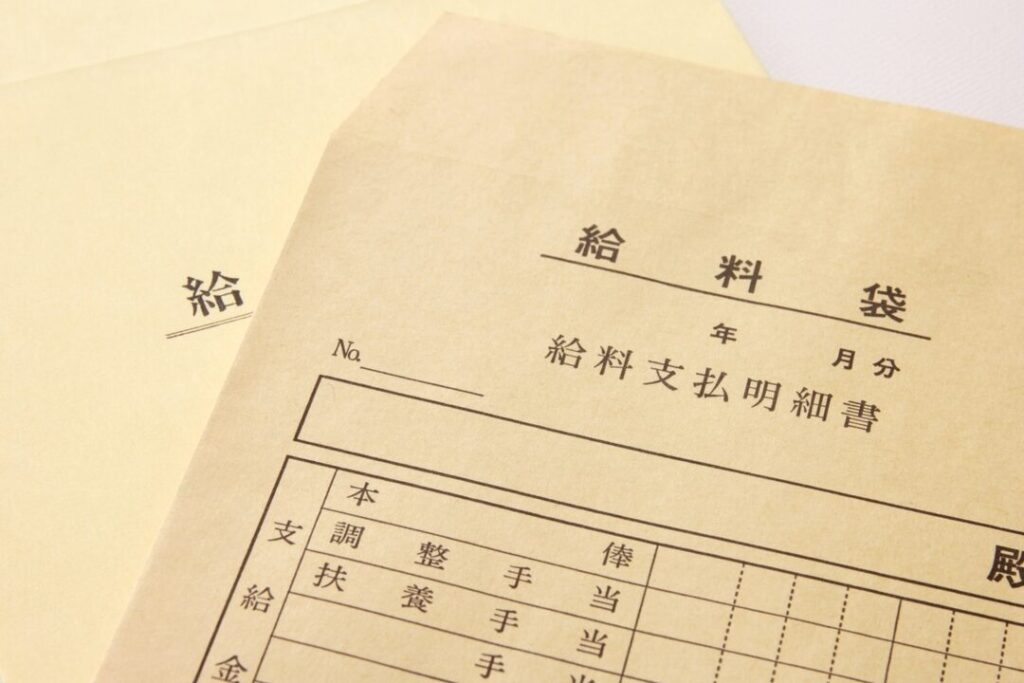 給
給料袋
年 月分
給料支払明細書
No.
殿
支給金
本俸
調整手当
扶養手当
手当